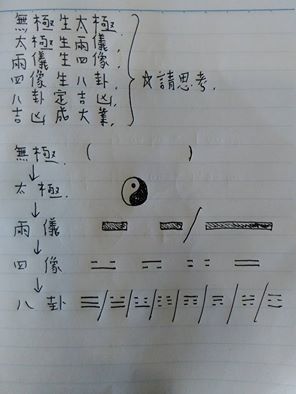 無極生太極.
太極生兩儀.
兩儀生四像.
四像生八卦.
八卦定吉凶.
吉凶成大業.
☆請思考.
無極. (          )
↓
太極.
↓
兩儀
↓
四像
↓
八卦